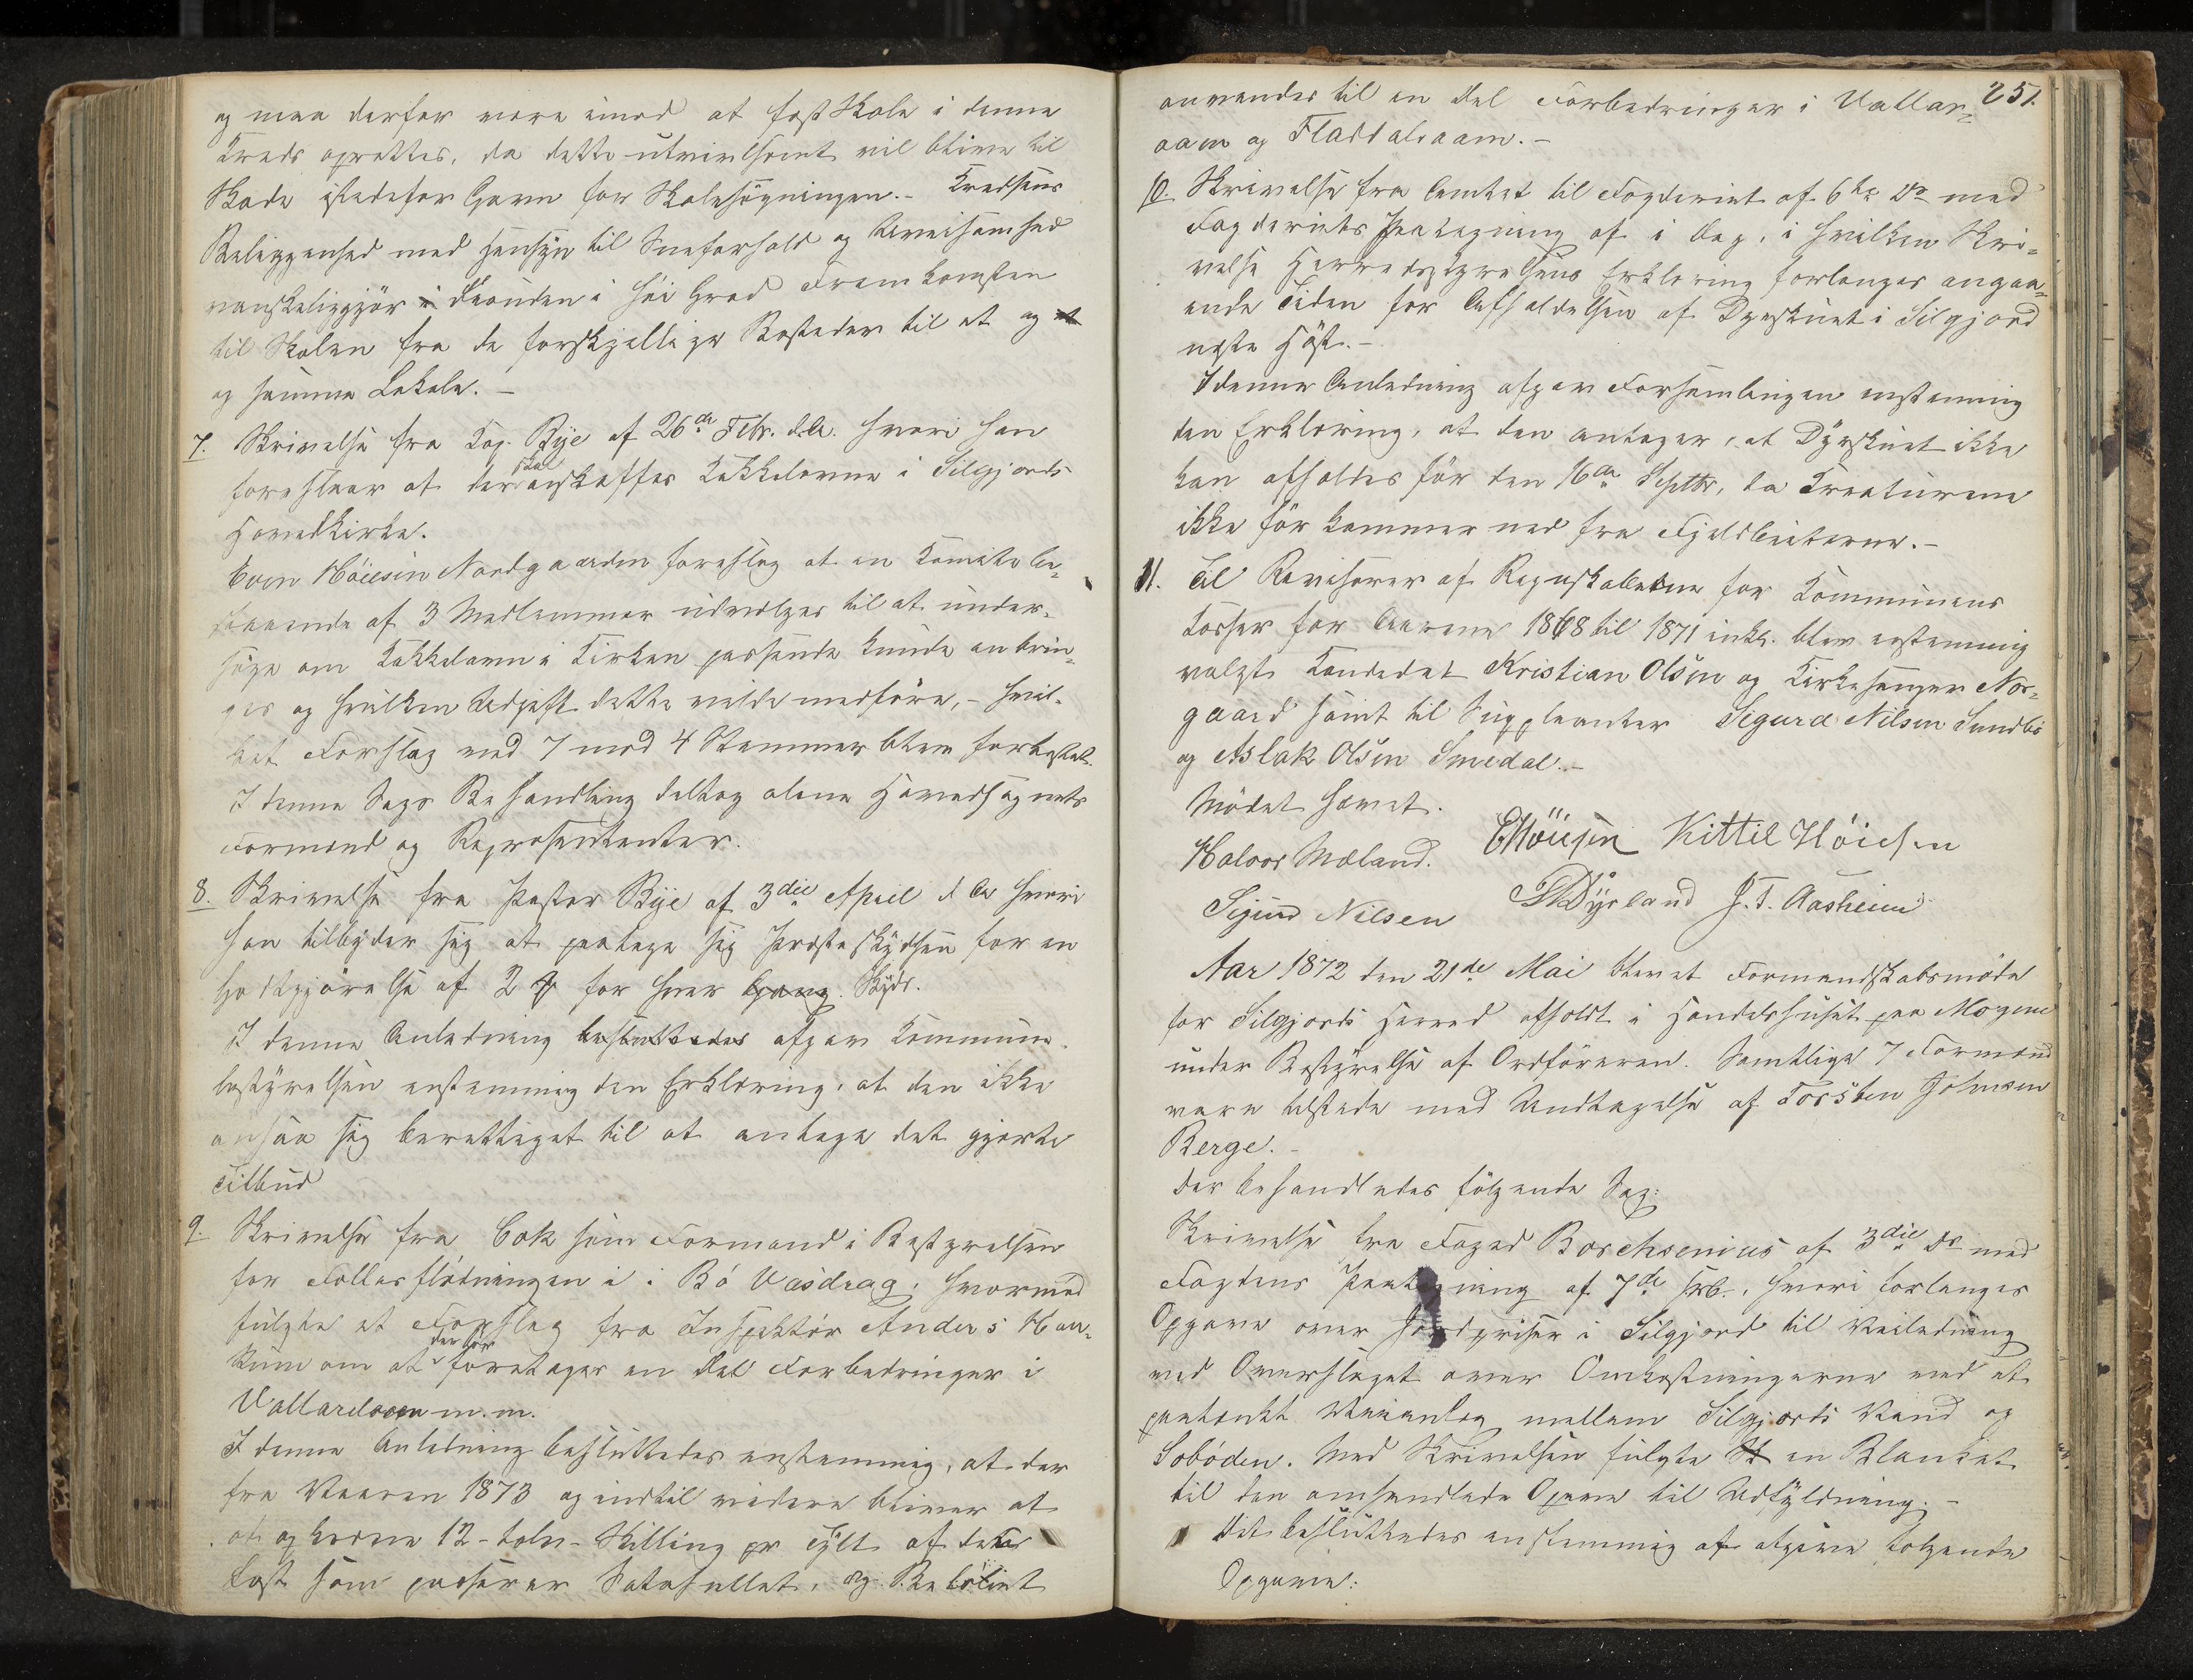 og maa derfor være imod at fast Skole i denne
Kreds oprettes, da dette utvivlsomt vil blive til
Skade istedetfor Gavn for Skolesøgningen. – Kredsens
Beliggenhed med Hensyn til Sneforhold og Uveisomhed
vanskeliggjør desuden i høi Grad Fremkomsten
til Skolen fra de forskjellige Bosteder til et og
og samme Lokale. –
7. Skrivelse fra Kap. Bye af 26de Febr. d.A. hvori han
foreslaar at der skal anskaffes Kakkelovne i Silgjords
Hovedkirke.
Even Höiesen Nordgaarden foreslog at en Komite be-
staaende af 3 Medlemmer udvælges til at under-
søge om Kakkelovn i Kirken passende kunde anbrin-
ges og hvilken Udgift dette vilde medføre, – hvil-
ket Forslag med 7 mod 4 Stemmer blev forkastet.
I denne Sags Behandling deltog alene Hovedsognets
Formænd og Repræsentanter.
8. Skrivelse fra Pastor Bye af 3die April d A hvori
han tilbyder sig at paatage sig Presteskydsen for en
Godtgjørelse af 2 for hver Gang. Skyds.
I denne Anledning besluttedes afgav Kommune-
bestyrelsen enstemmig den Erklæring, at den ikke
ansaa sig berettiget til at antage det gjorte
Tilbud
9. Skrivelse fra Cok som Formand i Bestyrelsen
for Fællesflødningen i Bö Vasdrag, hvormed
fulgte et Forslag fra Inspektör Anders Hau-
kum om at der bør foretages en Del Forbedringer i
Vallaraaen m.m.
I denne Anledning besluttedes enstemmig, at der
fra Vaaren 1873 og indtil videre bliver at
at opkræve 12 – tolv – Skilling pr Tylt af det
Last som passerer Satafllet, og Beløbet
251.
anvendes til en Del Forbedringer i Vallar-
aaen og Flatdalsaaen. –
10. Skrivelse fra Amtet til Fogderiet af 6te ds med
Fogderiets Paategning af i Dag, i hvilken Skri-
velse Herredsstyrelsens Erklæring forlanges angaa-
ende Tiden for Afholdelsen af Dyrskuet i Silgjord
næste Höst. –
I denne Anledning afgav Forsamlingen enstemmig
den Erklæring, at den antager, at Dyrskuet ikke
kan afholdes før den 16de Septbr, da Kreaturene
ikke før kommer ned fra Fjeldbeiterne. –
11. Til Revisorer af Regnskaberne for Kommunens
Kasser for Aarene 1868 til 1871 inkl. blev enstemmig
valgt Kandidat Kristian Olsen og Kirkesanger Nor-
gaard samt til Suppleanter Sigurd Nilsen Sundbö
og Aslak Olsen Smedal. –
Mødet hævet.
Halvor Mæland. EHöiesen Kittil Höiesen
Sigurd Nilsen Dyrland J. T. Aasheim
Aar 1872 den 21de Mai blev et Formandskabsmöde
for Silgjords Herred afholdt i Handelshuset paa Mogene
under Bestyrelse af Ordföreren. Samtlige 7 Formænd
vare tilstede med Undtagelse af Torsten Johnsen
Berge. –
Der behandledes følgende Sag:
Skrivelse fra Foged Borchsenius af 3die ds med
Fogdens Paategning af 7de s., hvori forlanges
Opgave over Jordpriser i Silgjord til Veiledning
ved Overslaget over Omkostningerne ved et
paatænkt Veianlæg mellem Silgjords Vand og
Sobøden. Med Skrivelsen fulgte en Blanket
til den omhandlede Opgave til Udfyldning. –
Det besluttedes enstemmig at afgive følgende
Opgave: